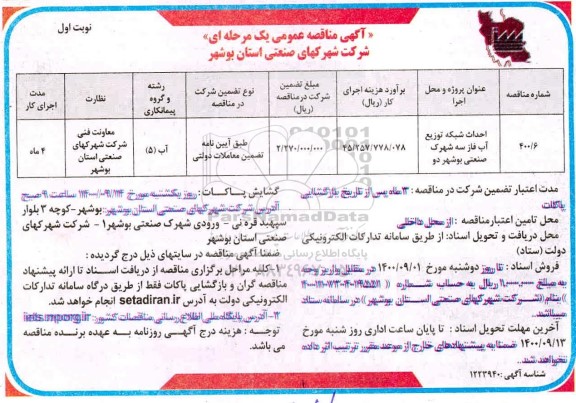 نوبت اول
« آگهی مناقصه عمومی یک مرحله ای»
شرکت شهرکهای صنعتی استان بوشهر
شماره مناقصه
عنوان پروژه و محل اجرا
برآورد هزینه اجرای کار (ریال)
مبلغ تضمین شرکت در مناقصه (ریال)
نوع تضمین شرکت در مناقصه
رشته و گروه پیمانکاری
نظارت
مدت اجرای کار
۴۰۰/۶
احداث شبکه توزیع آب فاز سه شهرک صنعتی بوشهر دو
۴۵/۲۵۷/۷۷۸/۰۷۸
۲/۲۷۰/۰۰۰/۰۰۰
طبق آیین نامه تضمین معاملات دولتی
آب (۵)
معاونت فنی شرکت شهرکهای صنعتی استان بوشهر
۴ ماه
مدت اعتبار تضمین شرکت در مناقصه : ۳ ماه پس از تاریخ بازگشایی پاکات
محل تامین اعتبار مناقصه : از محل داخلی
محل دریافت و تحویل اسناد: از طریق سامانه تدارکات الکترونیکی دولت (ستاد)
فروش اسناد : تا روز دوشنبه مورخ ۱۴۰۰/۰۹/۰۱ در مقابل واریز وجه
بنام (شرکت شهرکهای صنعتی استان بوشهر) در سامانه ستاد میباشد.
آخرین مهلت تحویل اسناد : تا پایان ساعت اداری روز شنبه مورخ
۱۴۰۰/۰۹/۱۳ ضمنا به پیشنهادهای خارج از موعد مقرر ترتیب اثر داده نخواهد شد.
شناسه آگهی: ۱۲۲۳۹۴۰
گشایش پاکات: روز یکشنبه مورخ ۱۴۰۰/۰۹/۱۴ ساعت ۹ صبح
آدرس شرکت شهرکهای صنعتی استان بوشهر: بوشهر-کوچه ۲ بلوار
سپهبد قره نی - ورودی شهرک صنعتی بوشهر۱ - شرکت شهرکهای
صنعتی استان بوشهر
ضمنا آگهی مناقصه در سایتهای ذیل درج گردیده :
۱- کلیه مراحل برگزاری مناقصه از دریافت اسناد تا ارائه پیشنهاد
مناقصه گران و بازگشایی پاکات فقط از طریق درگاه سامانه تدارکات
الکترونیکی دولت به آدرس setadiran.ir انجام خواهد شد.
۲- آدرس پایگاه ملی اطلاع رسانی مناقصات کشور: iets.mporg.ir
توجه : هزینه درج آگهی روزنامه به عهده برنده مناقصه
می باشد.
ParsNamadData